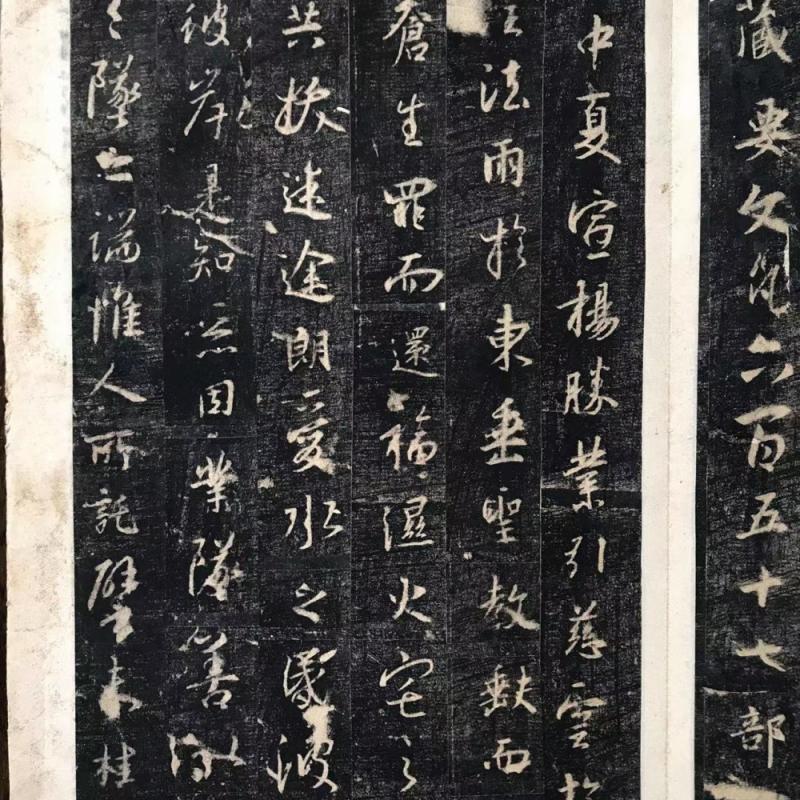 藏要文凡六百五十七部
中夏宣揚勝業引慈雲於
法雨於東垂聖教缺而
蒼生罪而還福濕火宅之
共拔迷途朗愛水之昬波
彼岸是知惡因業墜善以
墜之端惟人所託譬夫桂